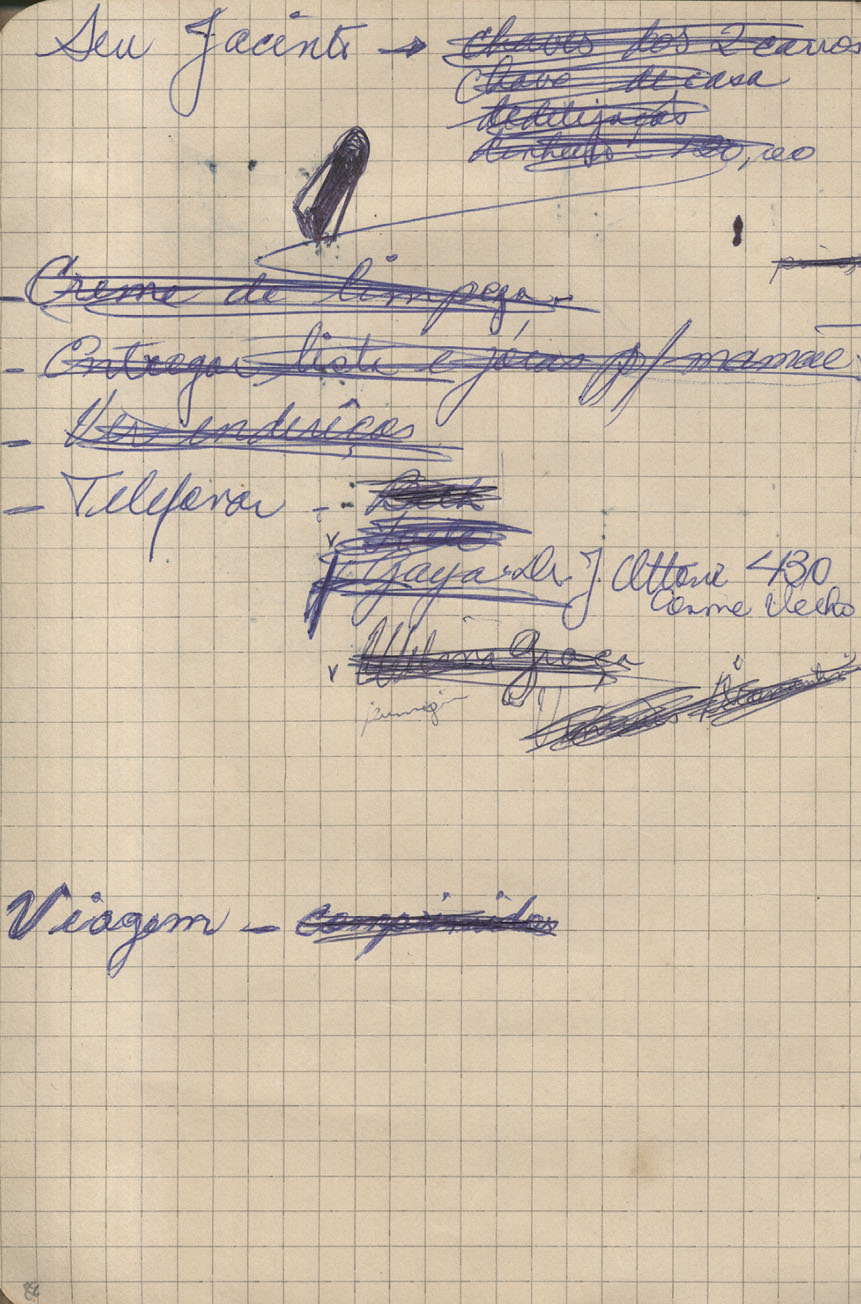 Seu Jacinto → chaves dos 2 carros
chave de casa
dedetização
dinheiro - 120,00
- Creme de limpeza -
- Entregar lista e jóias p/ mamãe
- Ver enderêços
- Telefonar -
Gaya - J. Ottoni 430
Cosme Velho
Wilma Graça
Viagem - comprimidos